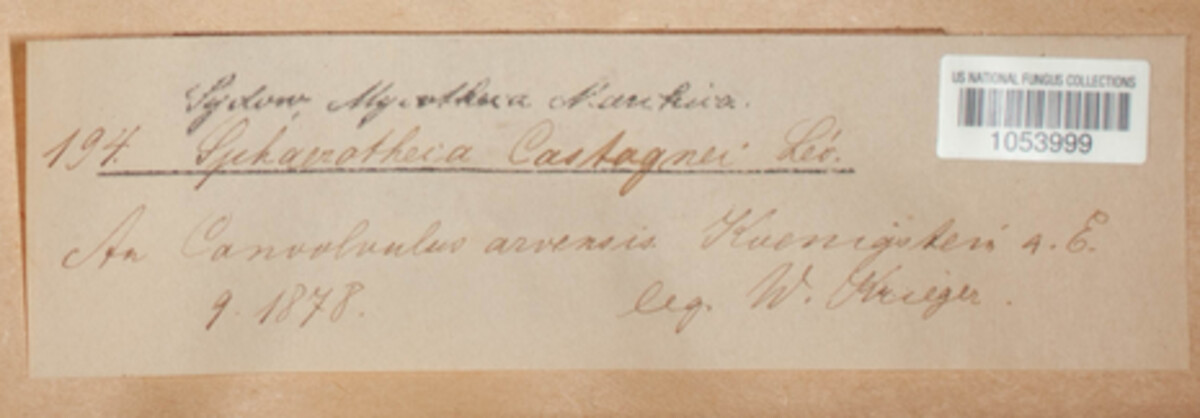 Sydow, Mycotheca Marchica.
194. Sphaerotheca Castagnei Lév.
An Convolvulus arvensis Koenigstein a. E.
9. 1878. leg. W. Krieger.
US NATIONAL FUNGUS COLLECTIONS
1053999